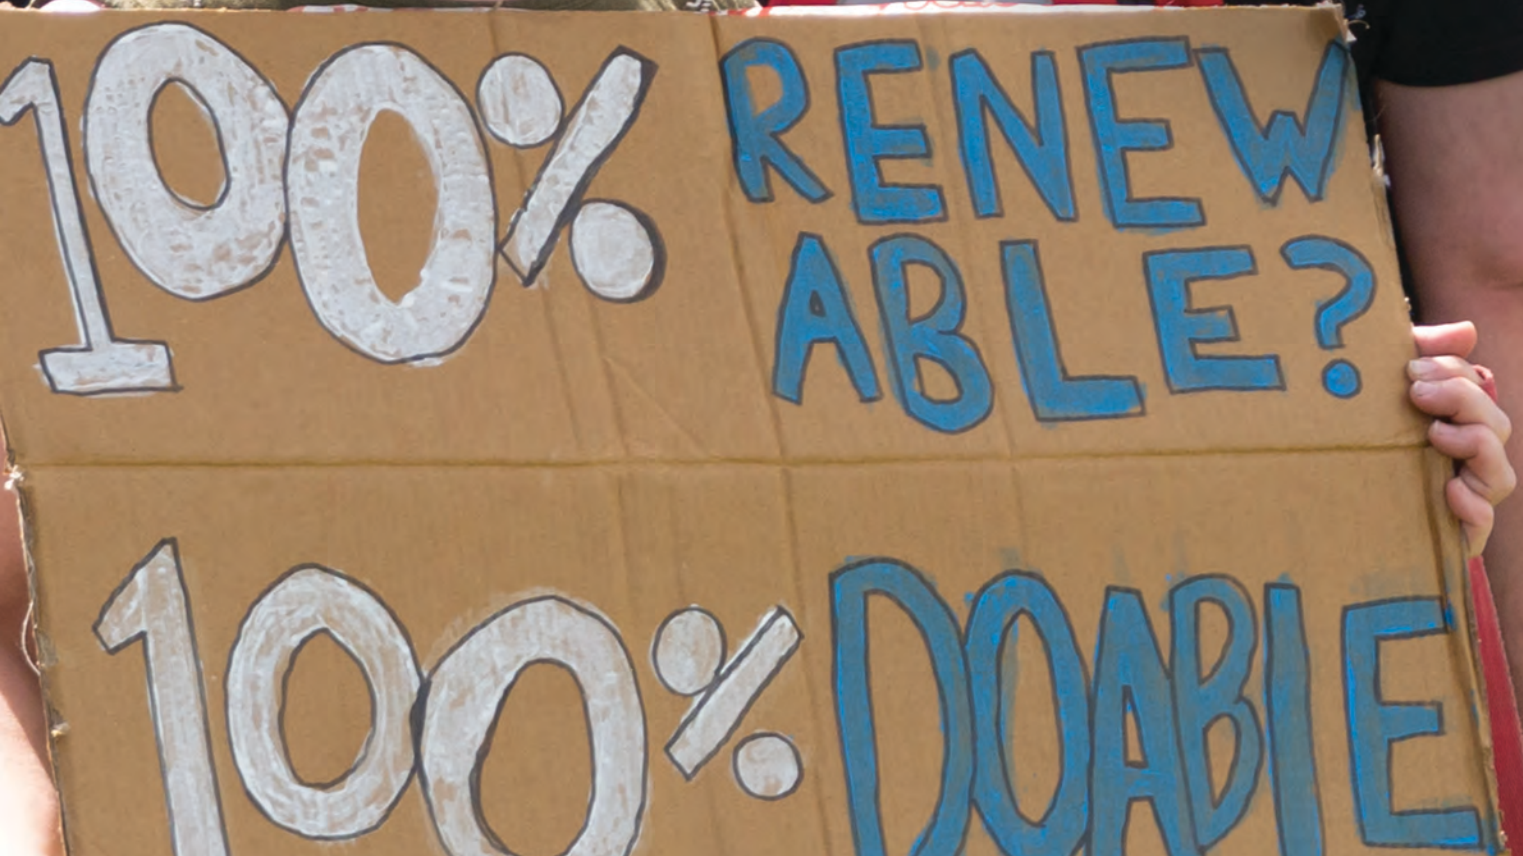 100% RENEW
ABLE?
100% DOABLE